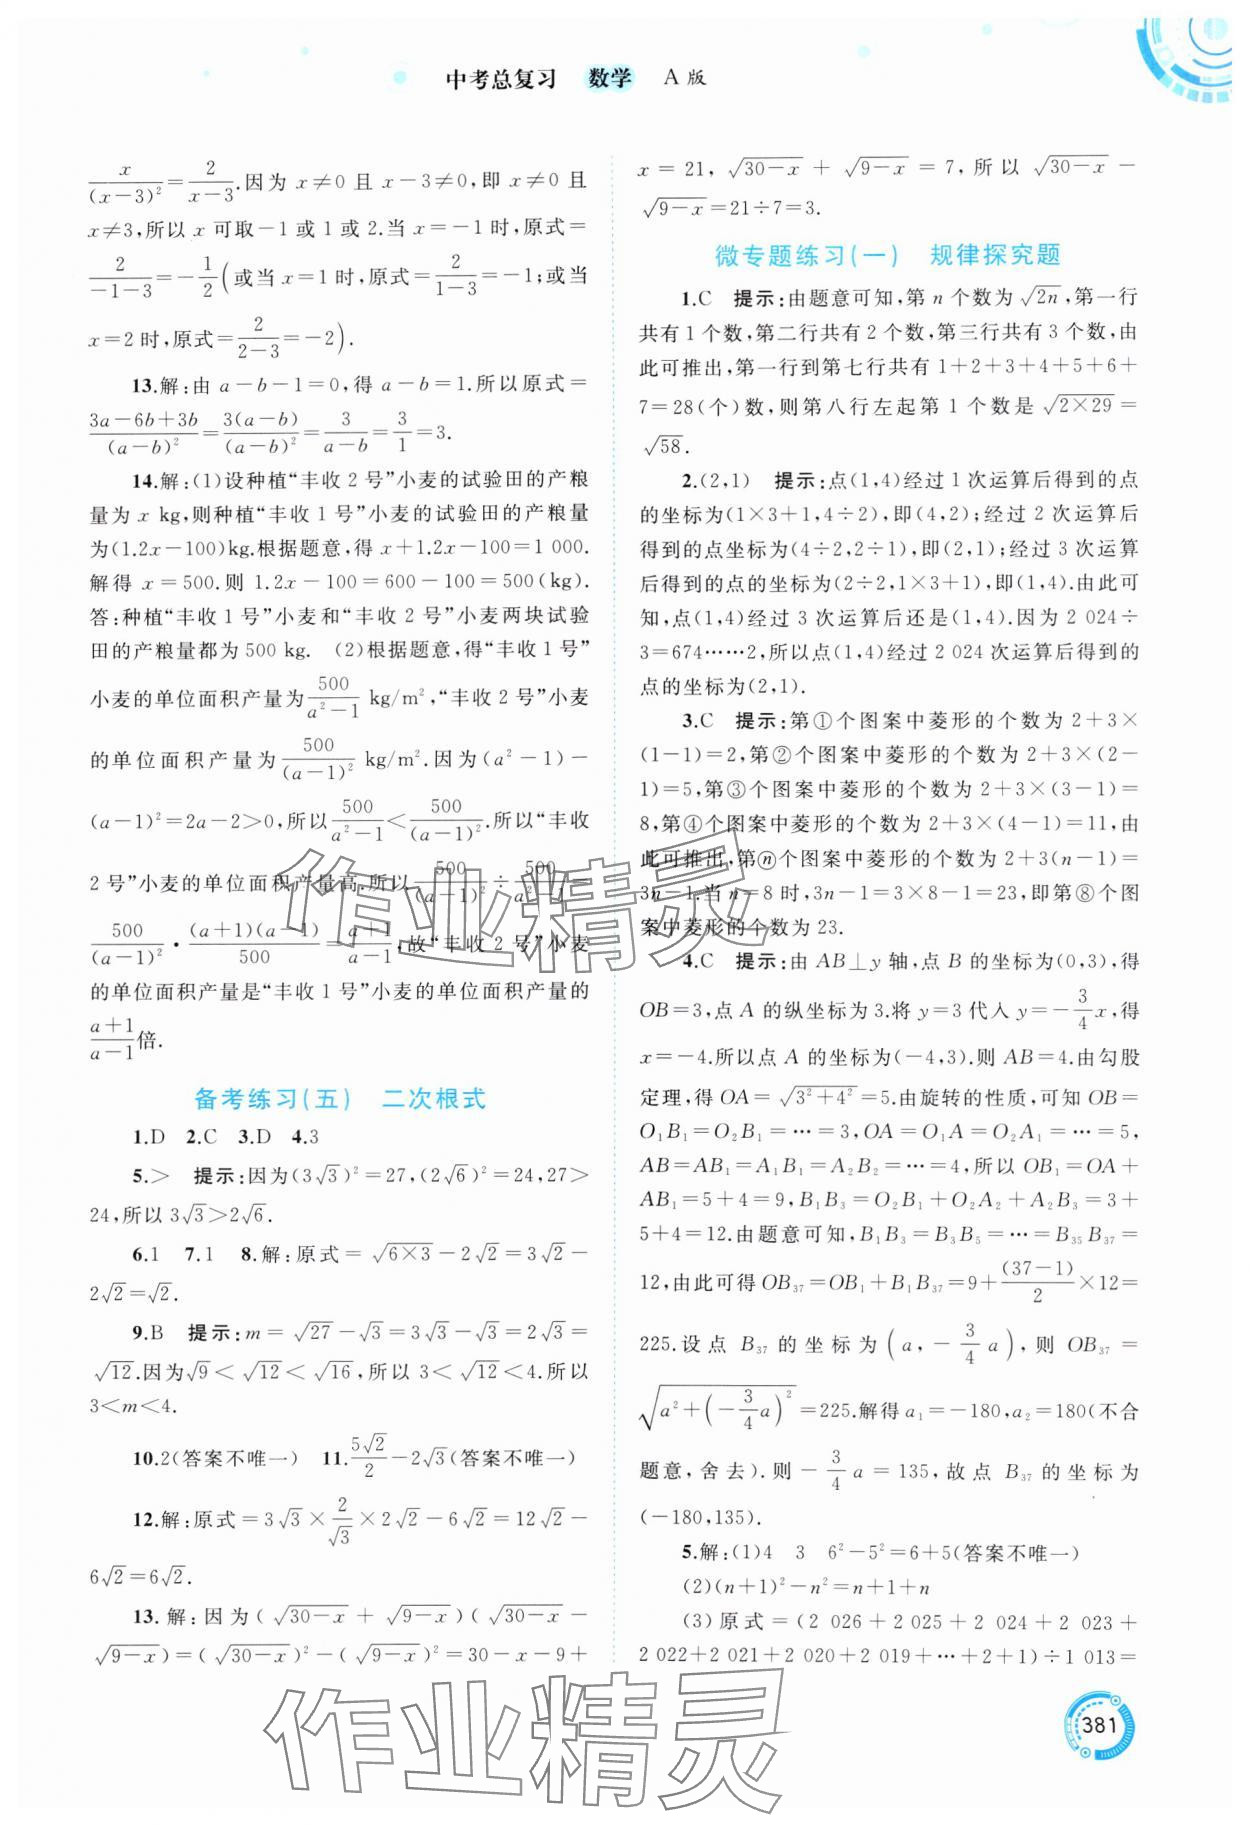 中考总复习 数学 A版
x/(x-3)²=2/(x-3).因为 x≠0 且 x-3≠0,即 x≠0 且
x≠3,所以 x 可取-1或1或2.当 x=-1时,原式=
2/(-1-3)=-1/2(或当 x=1时,原式=2/(1-3)=-1;或当
x=2时,原式=2/(2-3)=-2).
13.解:由 a-b-1=0,得 a-b=1.所以原式=
(3a-6b+3b)/(a-b)²=3(a-b)/(a-b)²=3/(a-b)=3/1=3.
14.解:(1)设种植“丰收2号”小麦的试验田的产粮
量为 x kg,则种植“丰收1号”小麦的试验田的产粮量
为(1.2x-100)kg.根据题意,得 x+1.2x-100=1 000.
解得 x=500.则 1.2x-100=600-100=500(kg).
答:种植“丰收1号”小麦和“丰收2号”小麦两块试验
田的产粮量都为500 kg. (2)根据题意,得“丰收1号”
小麦的单位面积产量为500/(a²-1) kg/m²,“丰收2号”小麦
的单位面积产量为500/(a-1)² kg/m².因为(a²-1)-
(a-1)²=2a-2>0,所以500/(a²-1)<500/(a-1)².所以“丰收
2号”小麦的单位面积产量高.所以500/(a-1)²÷500/(a²-1)=
500/(a-1)²·(a+1)(a-1)/500=(a+1)/(a-1),故“丰收2号”小麦
的单位面积产量是“丰收1号”小麦的单位面积产量的
(a+1)/(a-1)倍.
备考练习(五) 二次根式
1.D 2.C 3.D 4.3
5.> 提示:因为(3√3)²=27,(2√6)²=24,27>
24,所以3√3>2√6.
6.1 7.1 8.解:原式=√(6×3)-2√2=3√2-
2√2=√2.
9.B 提示:m=√27-√3=3√3-√3=2√3=
√12.因为√9<√12<√16,所以3<√12<4.所以
3<m<4.
10.2(答案不唯一) 11.5√2/2-2√3(答案不唯一)
12.解:原式=3√3×2/√3×2√2-6√2=12√2-
6√2=6√2.
13.解:因为(√(30-x)+√(9-x))(√(30-x)-
√(9-x))=(√(30-x))²-(√(9-x))²=30-x-9+
x=21,√(30-x)+√(9-x)=7,所以√(30-x)-
√(9-x)=21÷7=3.
微专题练习(一) 规律探究题
1.C 提示:由题意可知,第 n 个数为√(2n),第一行
共有1个数,第二行共有2个数,第三行共有3个数,由
此可推出,第一行到第七行共有1+2+3+4+5+6+
7=28(个)数,则第八行左起第1个数是√(2×29)=
√58.
2.(2,1) 提示:点(1,4)经过1次运算后得到的点
的坐标为(1×3+1,4÷2),即(4,2);经过2次运算后
得到的点坐标为(4÷2,2÷1),即(2,1);经过3次运算
后得到的点的坐标为(2÷2,1×3+1),即(1,4).由此可
知,点(1,4)经过3次运算后还是(1,4).因为2 024÷
3=674……2,所以点(1,4)经过2 024次运算后得到的
点的坐标为(2,1).
3.C 提示:第①个图案中菱形的个数为2+3×
(1-1)=2,第②个图案中菱形的个数为2+3×(2-
1)=5,第③个图案中菱形的个数为2+3×(3-1)=
8,第④个图案中菱形的个数为2+3×(4-1)=11,由
此可推出,第ⓝ个图案中菱形的个数为2+3(n-1)=
3n-1.当n=8时,3n-1=3×8-1=23,即第⑧个图
案中菱形的个数为23.
4.C 提示:由 AB⊥y 轴,点 B 的坐标为(0,3),得
OB=3,点 A 的纵坐标为3.将 y=3代入 y=-3/4x,得
x=-4.所以点 A 的坐标为(-4,3).则 AB=4.由勾股
定理,得 OA=√(3²+4²)=5.由旋转的性质,可知 OB=
O₁B₁=O₂B₁=…=3,OA=O₁A=O₂A₁=…=5,
AB=AB₁=A₁B₁=A₂B₂=…=4,所以 OB₁=OA+
AB₁=5+4=9,B₁B₃=O₂B₁+O₂A₂+A₂B₃=3+
5+4=12.由题意可知,B₁B₃=B₃B₅=…=B₃₅B₃₇=
12,由此可得 OB₃₇=OB₁+B₁B₃₇=9+(37-1)/2×12=
225.设点 B₃₇ 的坐标为(a,-3/4a),则 OB₃₇=
√(a²+(-3/4a)²)=225.解得 a₁=-180,a₂=180(不合
题意,舍去).则-3/4a=135,故点 B₃₇ 的坐标为
(-180,135).
5.解:(1)4 3 6²-5²=6+5(答案不唯一)
(2)(n+1)²-n²=n+1+n
(3)原式=(2 026+2 025+2 024+2 023+
2 022+2 021+2 020+2 019+…+2+1)÷1 013=
381
作业精灵
作业精灵